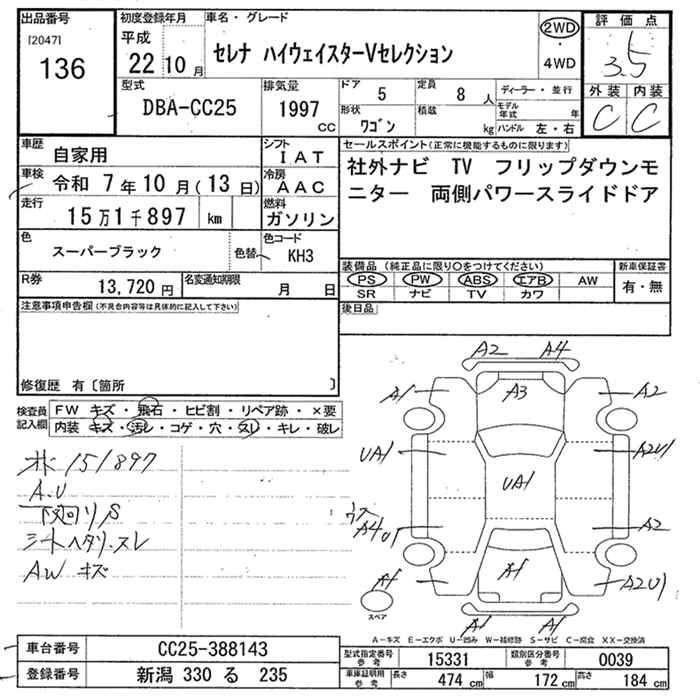 出品番号
[2047]
136
初度登録年月
平成
22 10 月
車名・グレード
セレナ ハイウェイスターVセレクション
2WD
・
4WD
評価点
3.5
外装 内装
C C
型式
DBA-CC25
排気量
1997 CC
ドア 5
形状 ワゴン
定員 8 人
積載 kg
ディーラー・並行
モデル年式 年
ハンドル 左・右
車歴 自家用
シフト IAT
車検 令和 7年10月(13日)
冷房 AAC
走行 15万1千897 km
燃料 ガソリン
色 スーパーブラック
色替
色コード KH3
R券 13,720円
名変通知期限 月 日
セールスポイント(正常に機能するものに限ります)
社外ナビ TV フリップダウンモ
ニター 両側パワースライドドア
装備品(純正品に限り○をつけてください)
PS PW ABS エアB AW
SR ナビ TV カワ
新車保証書
有・無
後日品
注意事項申告欄(不具合内容等は具体的に記入して下さい)
修復歴 有〔箇所 〕
検査員記入欄
FW キズ・飛石・ヒビ割・リペア跡・×要
内装 キズ・汚レ・コゲ・穴・スレ・キレ・破レ
151897
A.U
下廻りS
シートヘタリ・スレ
AW キズ
A2 A4
A1 A3 A2
UA1 A2U1
UA1
ウス
A4U1 A2
A1 A1 A2U1
A1 A1
スペア
A-キズ E-エクボ U-凹み W-補修跡 S-サビ C-腐食 XX-交換済
車台番号 CC25-388143
登録番号 新潟 330 る 235
型式指定番号 参考 15331
類別区分番号 参考 0039
車庫証明用 参考 長さ 474 cm 幅 172 cm 高さ 184 cm